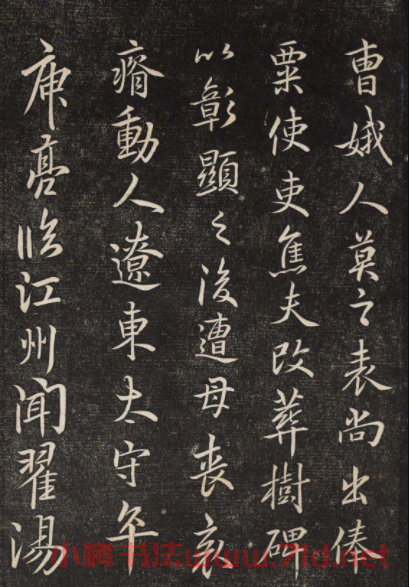 曹娥人莫之表尚出俸
粟使吏焦夫改葬樹碑
以彰顯之後遭母喪哀
瘠動人遼東太守卒
庾亮臨江州聞翟湯